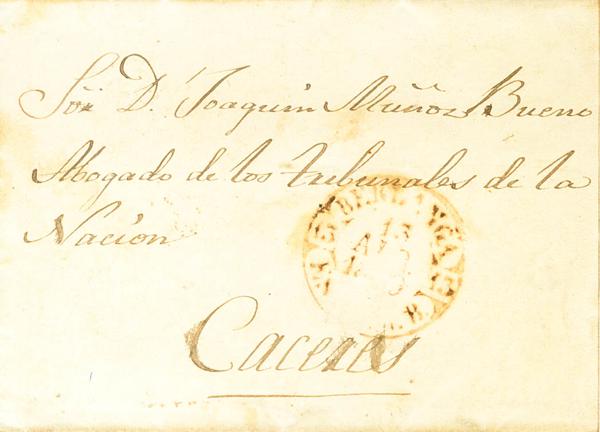 Sōr. D. Joaquin Muñoz Bueno
Abogado de los tribunales de la
Nacion
BERLANGA
13
Caceres